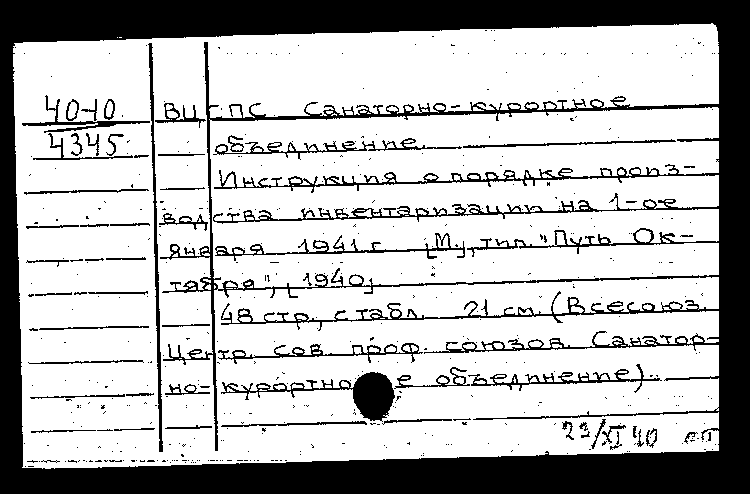 40-10
4345
ВЦСПС Санаторно-курортное
объединение.
Инструкция о порядке произ-
водства инвентаризации на 1-ое
января 1941 г. [М.], тип. "Путь Ок-
тября", [1940]
48 стр., с табл. 21 см. (Всесоюз.
Центр. сов. проф. союзов. Санатор-
но-курортное объединение).
23/XI 40